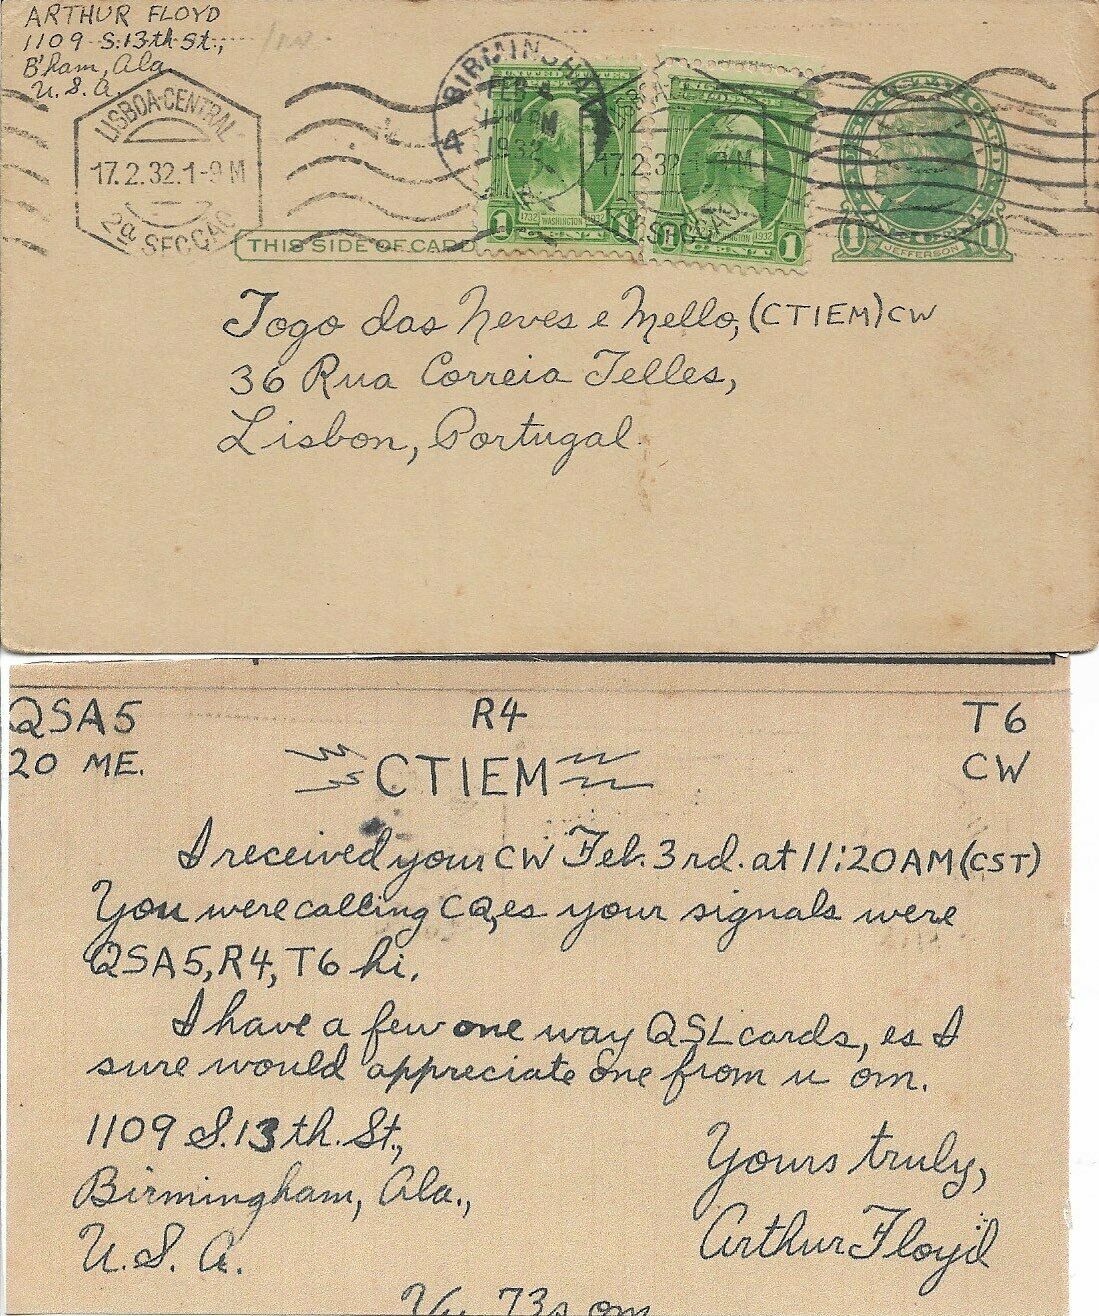 ARTHUR FLOYD
1109 S. 13th St.,
B'ham, Ala.
U. S. A.
LISBOA-CENTRAL
17.2.32.1-9 M
2a SECCAO
BIRMINGHAM
FEB 4
PM
1932
A
1732 WASHINGTON 1932
1 1
17.2.32.1-9M
WASHINGTON 1932
1
1 JEFFERSON 1
THIS SIDE OF CARD
Togo das Neves e Mello, (CTIEM) CW
36 Rua Correia Telles,
Lisbon, Portugal.
QSA5 R4 T6
20 ME. CTIEM CW
I received your CW Feb. 3rd. at 11:20AM (CST)
You were calling CQ, es your signals were
QSA5, R4, T6 hi.
I have a few one way QSL cards, es I
sure would appreciate one from u om.
1109 S. 13th. St.,
Birmingham, Ala.,
U. S. A.
Yours truly,
Arthur Floyd
73s om